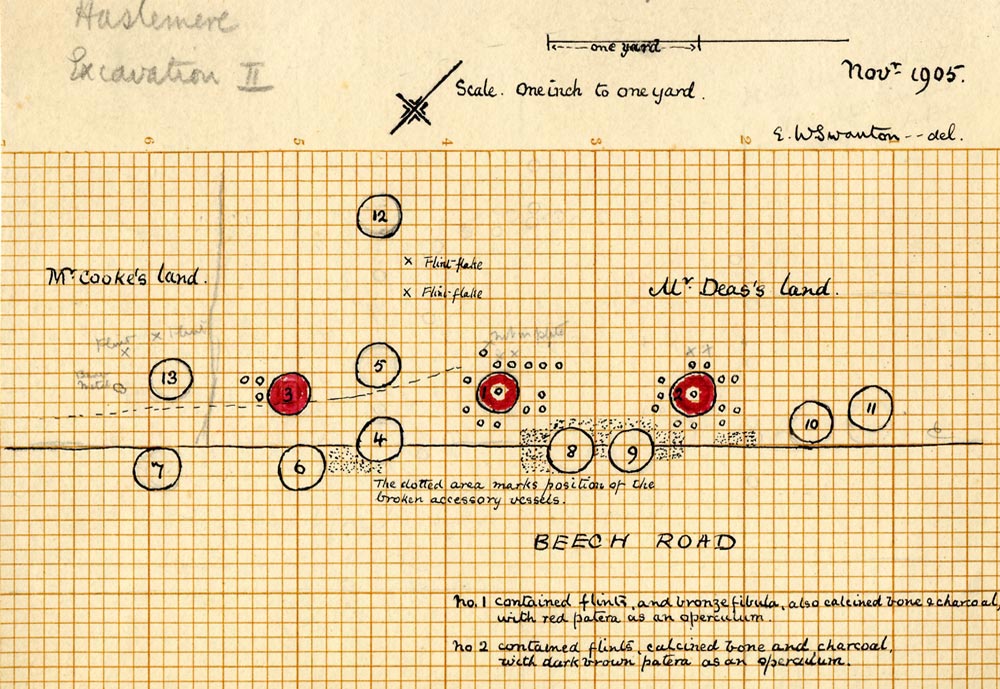 Haslemere
Excavation II
one yard
Scale. One inch to one yard.
Novr 1905.
E. W Swanton -- del.
6 5 4 3 2 1
12
Flint-flake
Flint-flake
Mr Cooke's land.
Mr. Deas's land.
Flint
13
3
5
1
2
4
10
11
7
6
8
9
The dotted area marks position of the
broken accessory vessels.
BEECH ROAD
No. 1 contained flints, and bronze fibula, also calcined bone & charcoal,
with red patera as an operculum.
No 2 contained flints, calcined bone and charcoal,
with dark brown patera as an operculum.